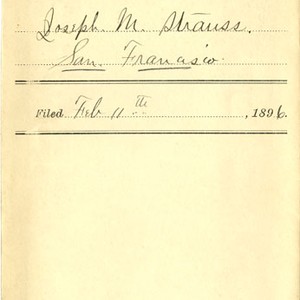 Joseph M. Strauss.
San Francisco.
Filed Feb 11th, 1896.